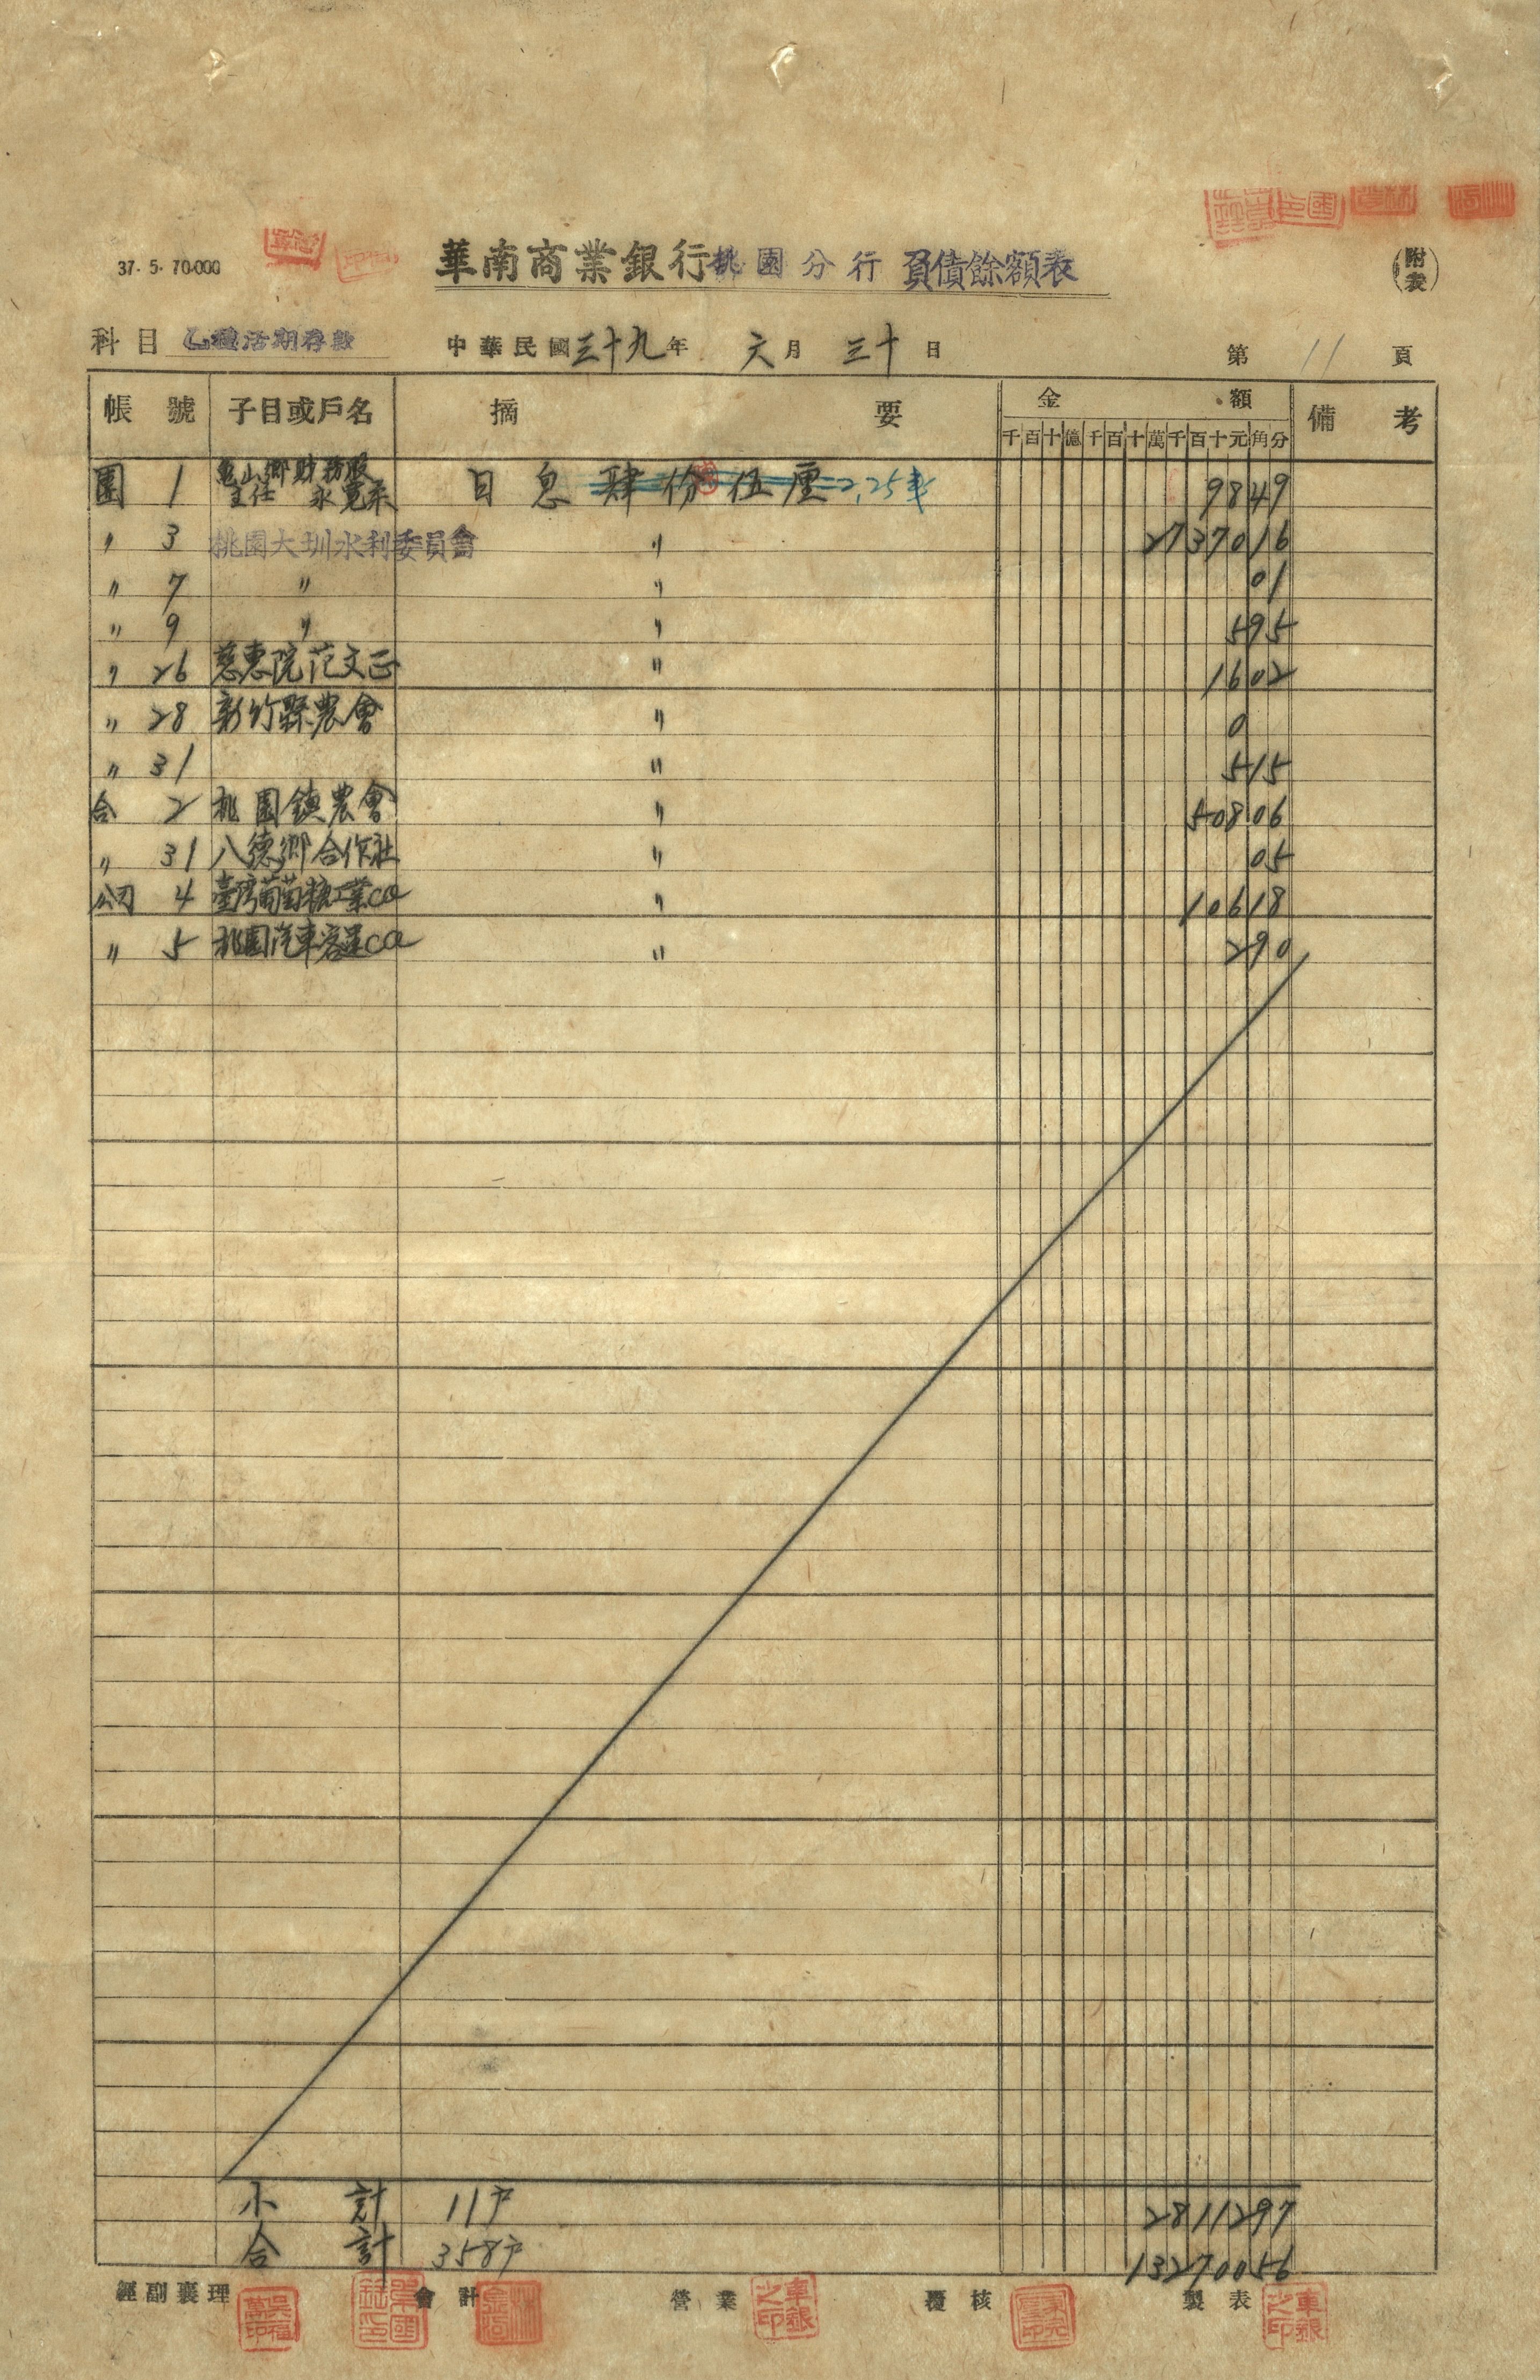 37.5.70.000
華南商業銀行桃園分行 負債餘額表
(附表)
科目 乙種活期存款 中華民國三十九年 六月 三十日 第 11 頁
帳號 子目或戶名 摘要 金額 備考
千百十億千百十萬千百十元角分
團 1 龜山鄉財務股主任 日息肆份伍厘 2.25 9849
〃 3 桃園大圳水利委員會 〃 2737016
〃 7 〃 〃 01
〃 9 〃 〃 595
〃 26 慈惠院范文正 〃 1602
〃 28 新竹縣農會 〃 0
〃 31 〃 515
合 2 桃園鎮農會 〃 50806
〃 31 八德鄉合作社 〃 05
公司 4 臺灣葡萄糖工業co 〃 10618
〃 5 桃園汽車客運co 〃 290
小計 11戶 2811297
合計 358戶 13270056
經副襄理 會計 營業 覆核 製表